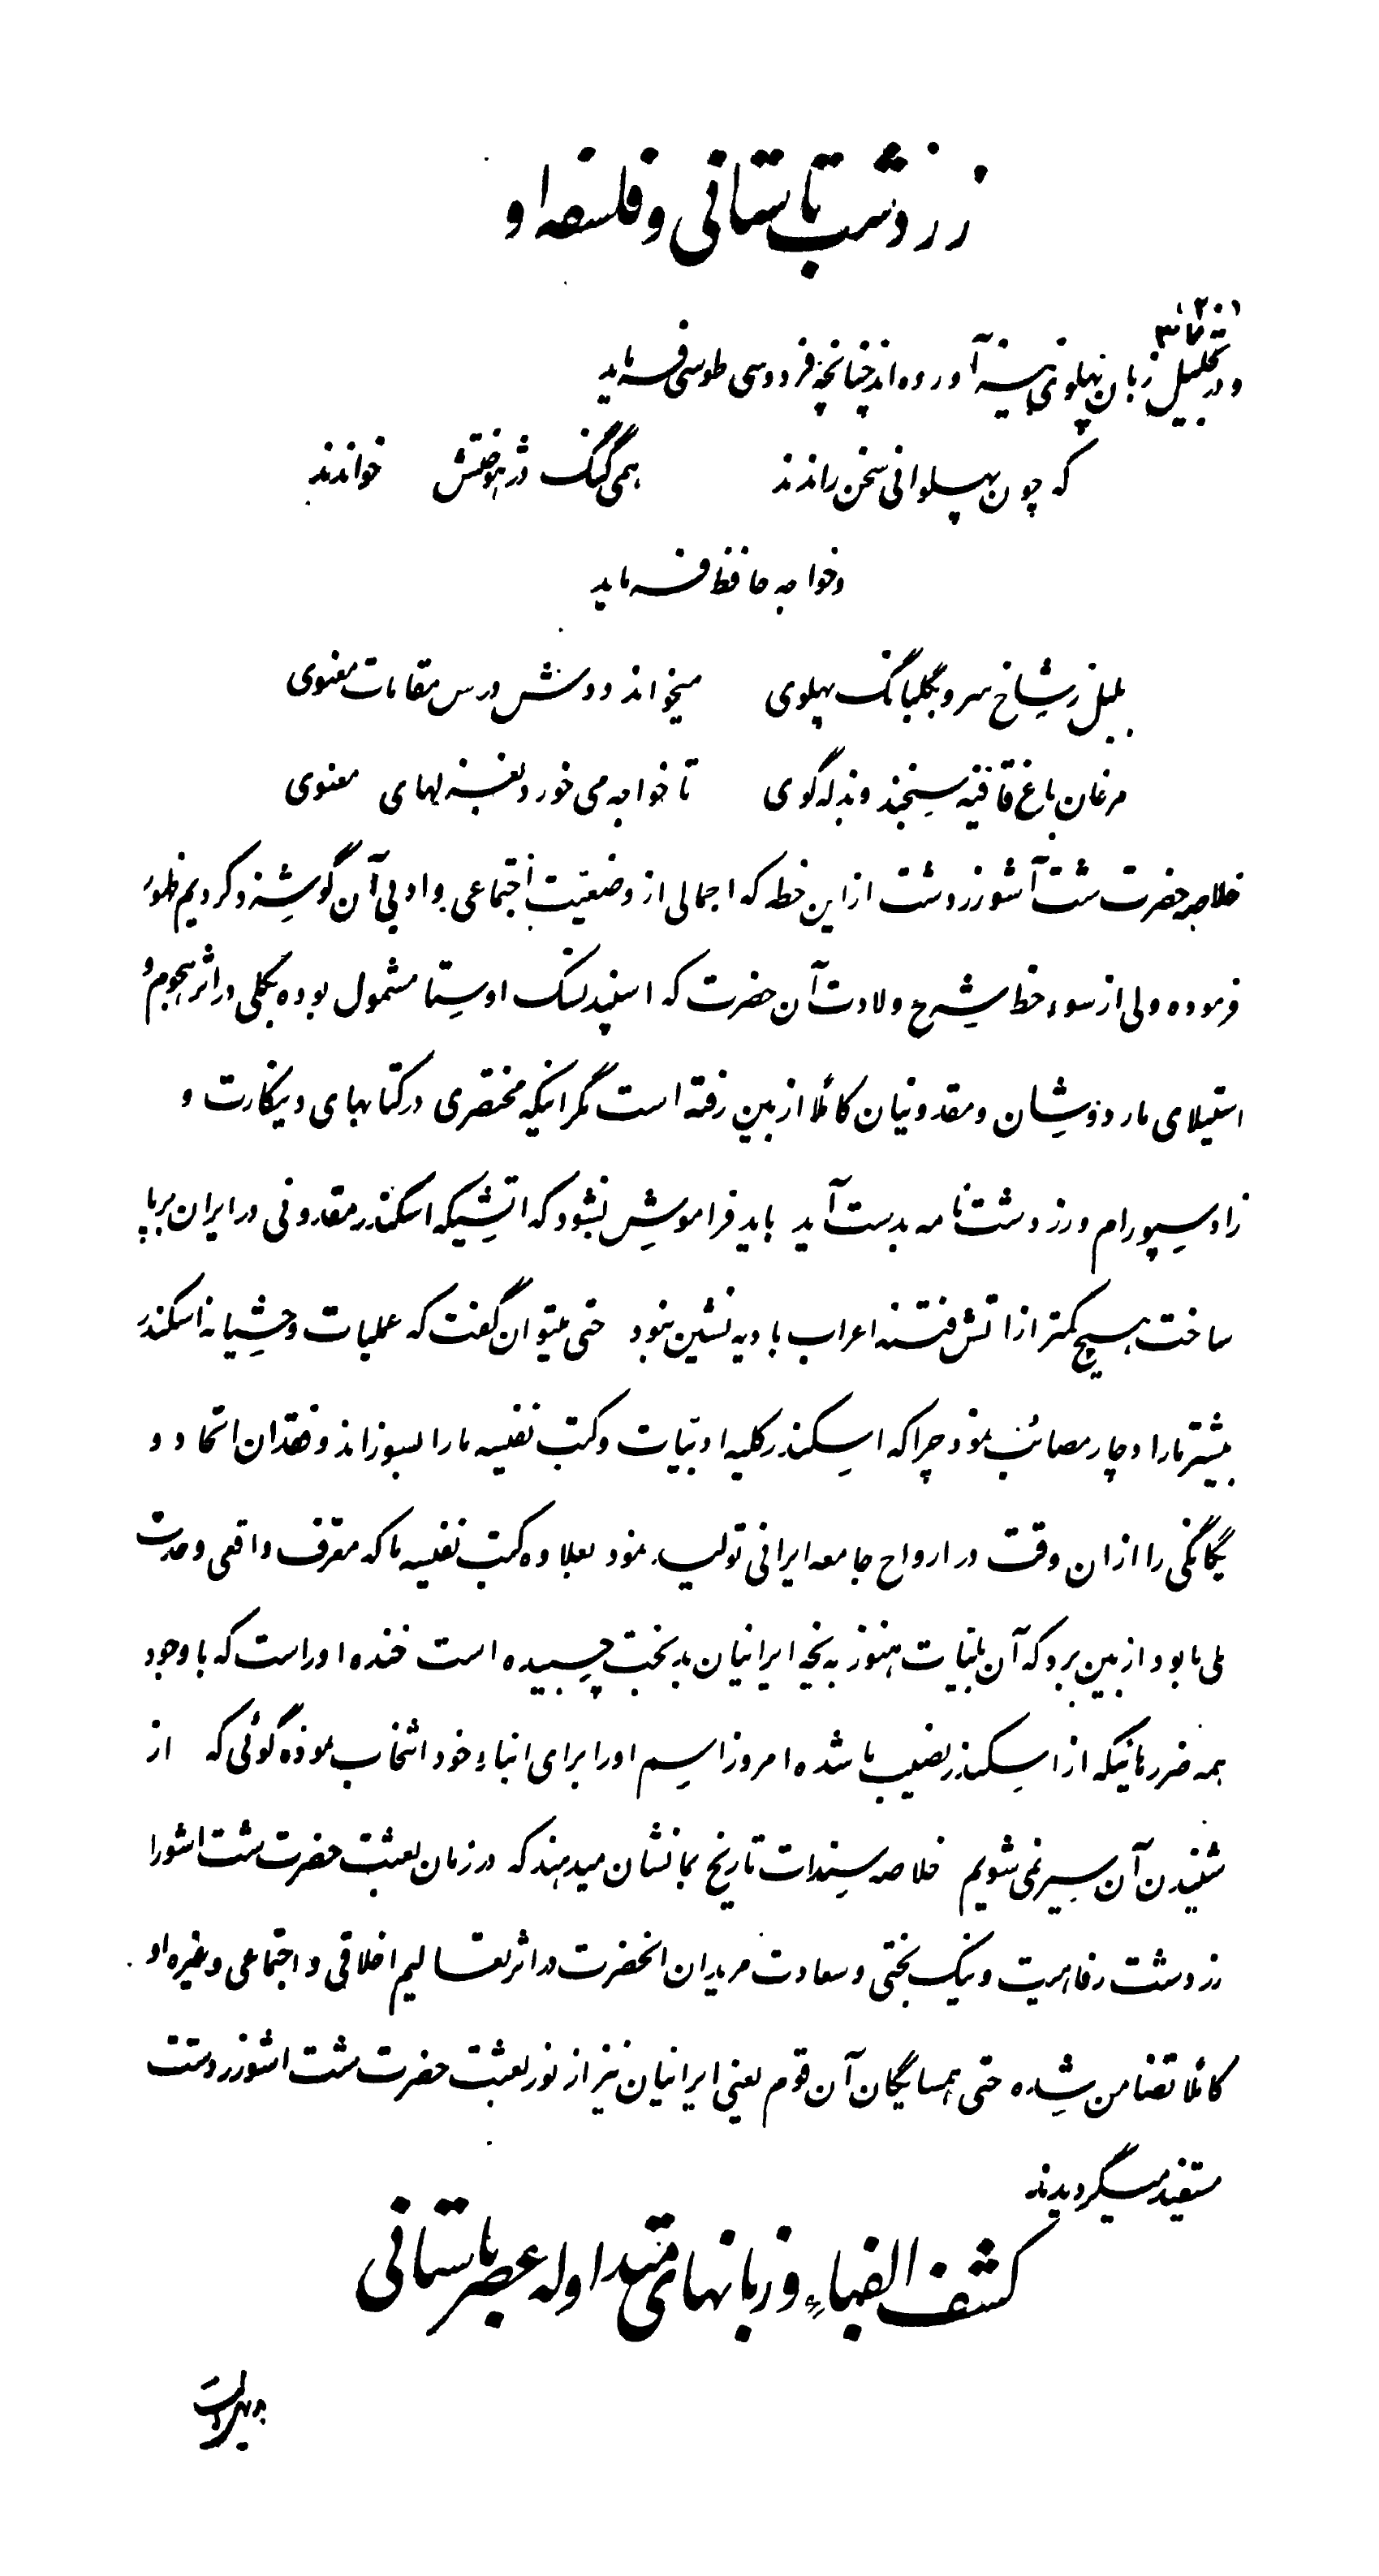 زردشت باستانی و فلسفه او
و در تجلیل زبان پهلوی نیز آورده‌اند چنانچه فردوسی طوسی فرماید
که چون پهلوانی سخن راندند همی گنگ دژهوختش خواندند
و خواجه حافظ فرماید
بلبل ز شاخ سرو بگلبانگ پهلوی میخواند دوش درس مقامات معنوی
مرغان باغ قافیه سنجند و بذله گوی تا خواجه می خورد بغزلهای معنوی
خلاصه حضرت شت آشو زردشت از این خطه که اجمالی از وضعیت اجتماعی و ادبی آن گوشزد کردیم ظهور
فرموده ولی از سوء حظ شرح ولادت آن حضرت که اسپند نسک اوستا مشمول بوده بکلی در اثر هجوم و
استیلای ماردوشان و مقدونیان کاملا از بین رفته است مگر اینکه مختصری در کتابهای دینکارت و
زادسپورام و زردشت نامه بدست آید باید فراموش نشود که اتشیکه اسکندر مقدونی در ایران برپا
ساخت هیچ کمتر از اتش فتنه اعراب بادیه نشین نبود حتی میتوان گفت که عملیات وحشیانه اسکندر
بیشتر مارا دچار مصائب نمود چرا که اسکندر کلیه ادبیات و کتب نفیسه مارا بسوزاند و فقدان اتحاد و
یگانگی را از ان وقت در ارواح جامعه ایرانی تولید نمود بعلاوه کتب نفیسه ما که معرف واقعی وحدت
ملی ما بود از بین برد که آن بلیات هنوز به یخه ایرانیان بدبخت چسبیده است خنده اور است که با وجود
همه ضررهائیکه از اسکندر نصیب ما شده امروز اسم اورا برای ابناء خود انتخاب نموده گوئی که از
شنیدن آن سیر نمی شویم خلاصه سندات تاریخ بما نشان میدهند که در زمان بعثت حضرت شت اشورا
زردشت رفاهیت و نیک بختی و سعادت مریدان انحضرت در اثر تعالیم اخلاقی و اجتماعی و غیره او
کاملا تضامن شده حتی همسایگان آن قوم یعنی ایرانیان نیز از نور بعثت حضرت شت اشو زردشت
مستفید میگردیدند
کشف الفباء و زبانهای متداوله عصر باستانی